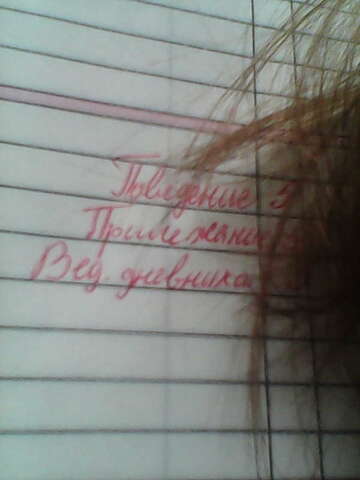 Поведение 5
Прилежание
Вед. дневника